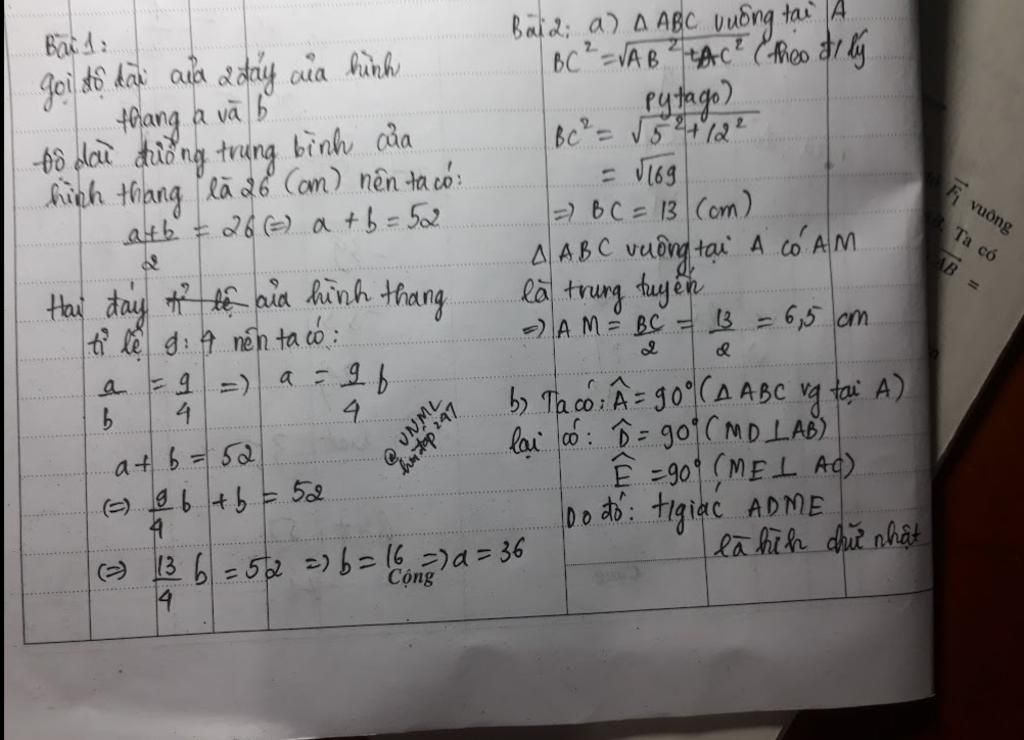 Bài 1:
gọi độ dài của 2 đáy của hình
thang a và b
độ dài đường trung bình của
hình thang là 26 (cm) nên ta có:
a+b/2 = 26 (=) a + b = 52
Hai đáy tỉ lệ của hình thang
tỉ lệ 9:4 nên ta có:
a/b = 9/4 =) a = 9/4 b
a + b = 52
(=) 9/4 b + b = 52
(=) 13/4 b = 52 =) b = 16 =) a = 36
Cộng
@VNML
Bài 2: a) Δ ABC vuông tại A
BC² = √AB² + AC² (theo đ/lý
pytago)
BC² = √5² + 12²
= √169
=) BC = 13 (cm)
Δ ABC vuông tại A có AM
là trung tuyến
=) AM = BC/2 = 13/2 = 6,5 cm
b) Ta có: Â = 90° (Δ ABC vg tại A)
lại có: D̂ = 90° (MD⊥AB)
Ê = 90° (ME⊥ AC)
Do đó: t/giác ADME
là hình chữ nhật
F₁ vuông
Ta có
AB =